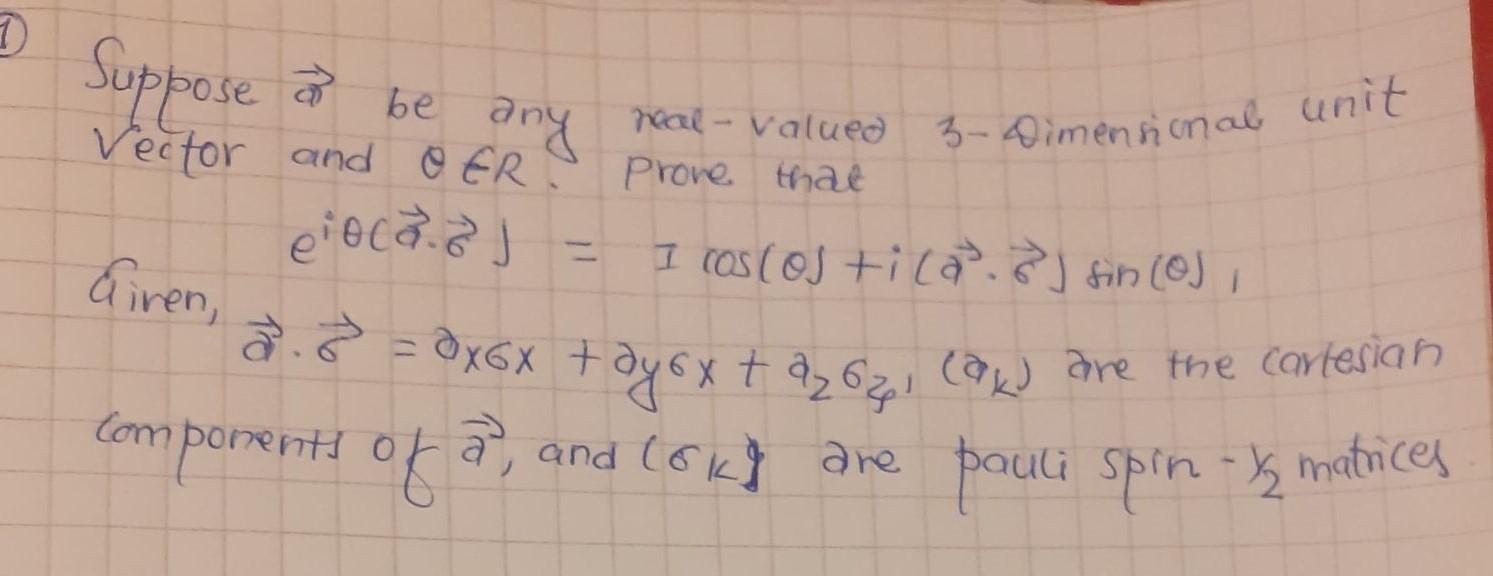 ① Suppose a⃗ be any real-valued 3-Dimensional unit
Vector and θ ∈ R. Prove that
e^{iθ(a⃗.σ⃗)} = I cos(θ) + i(a⃗.σ⃗) sin(θ),
Given,
a⃗.σ⃗ = axσx + ayσx + azσz, (ak) are the cartesian
components of a⃗, and (σk) are pauli spin-½ matrices.